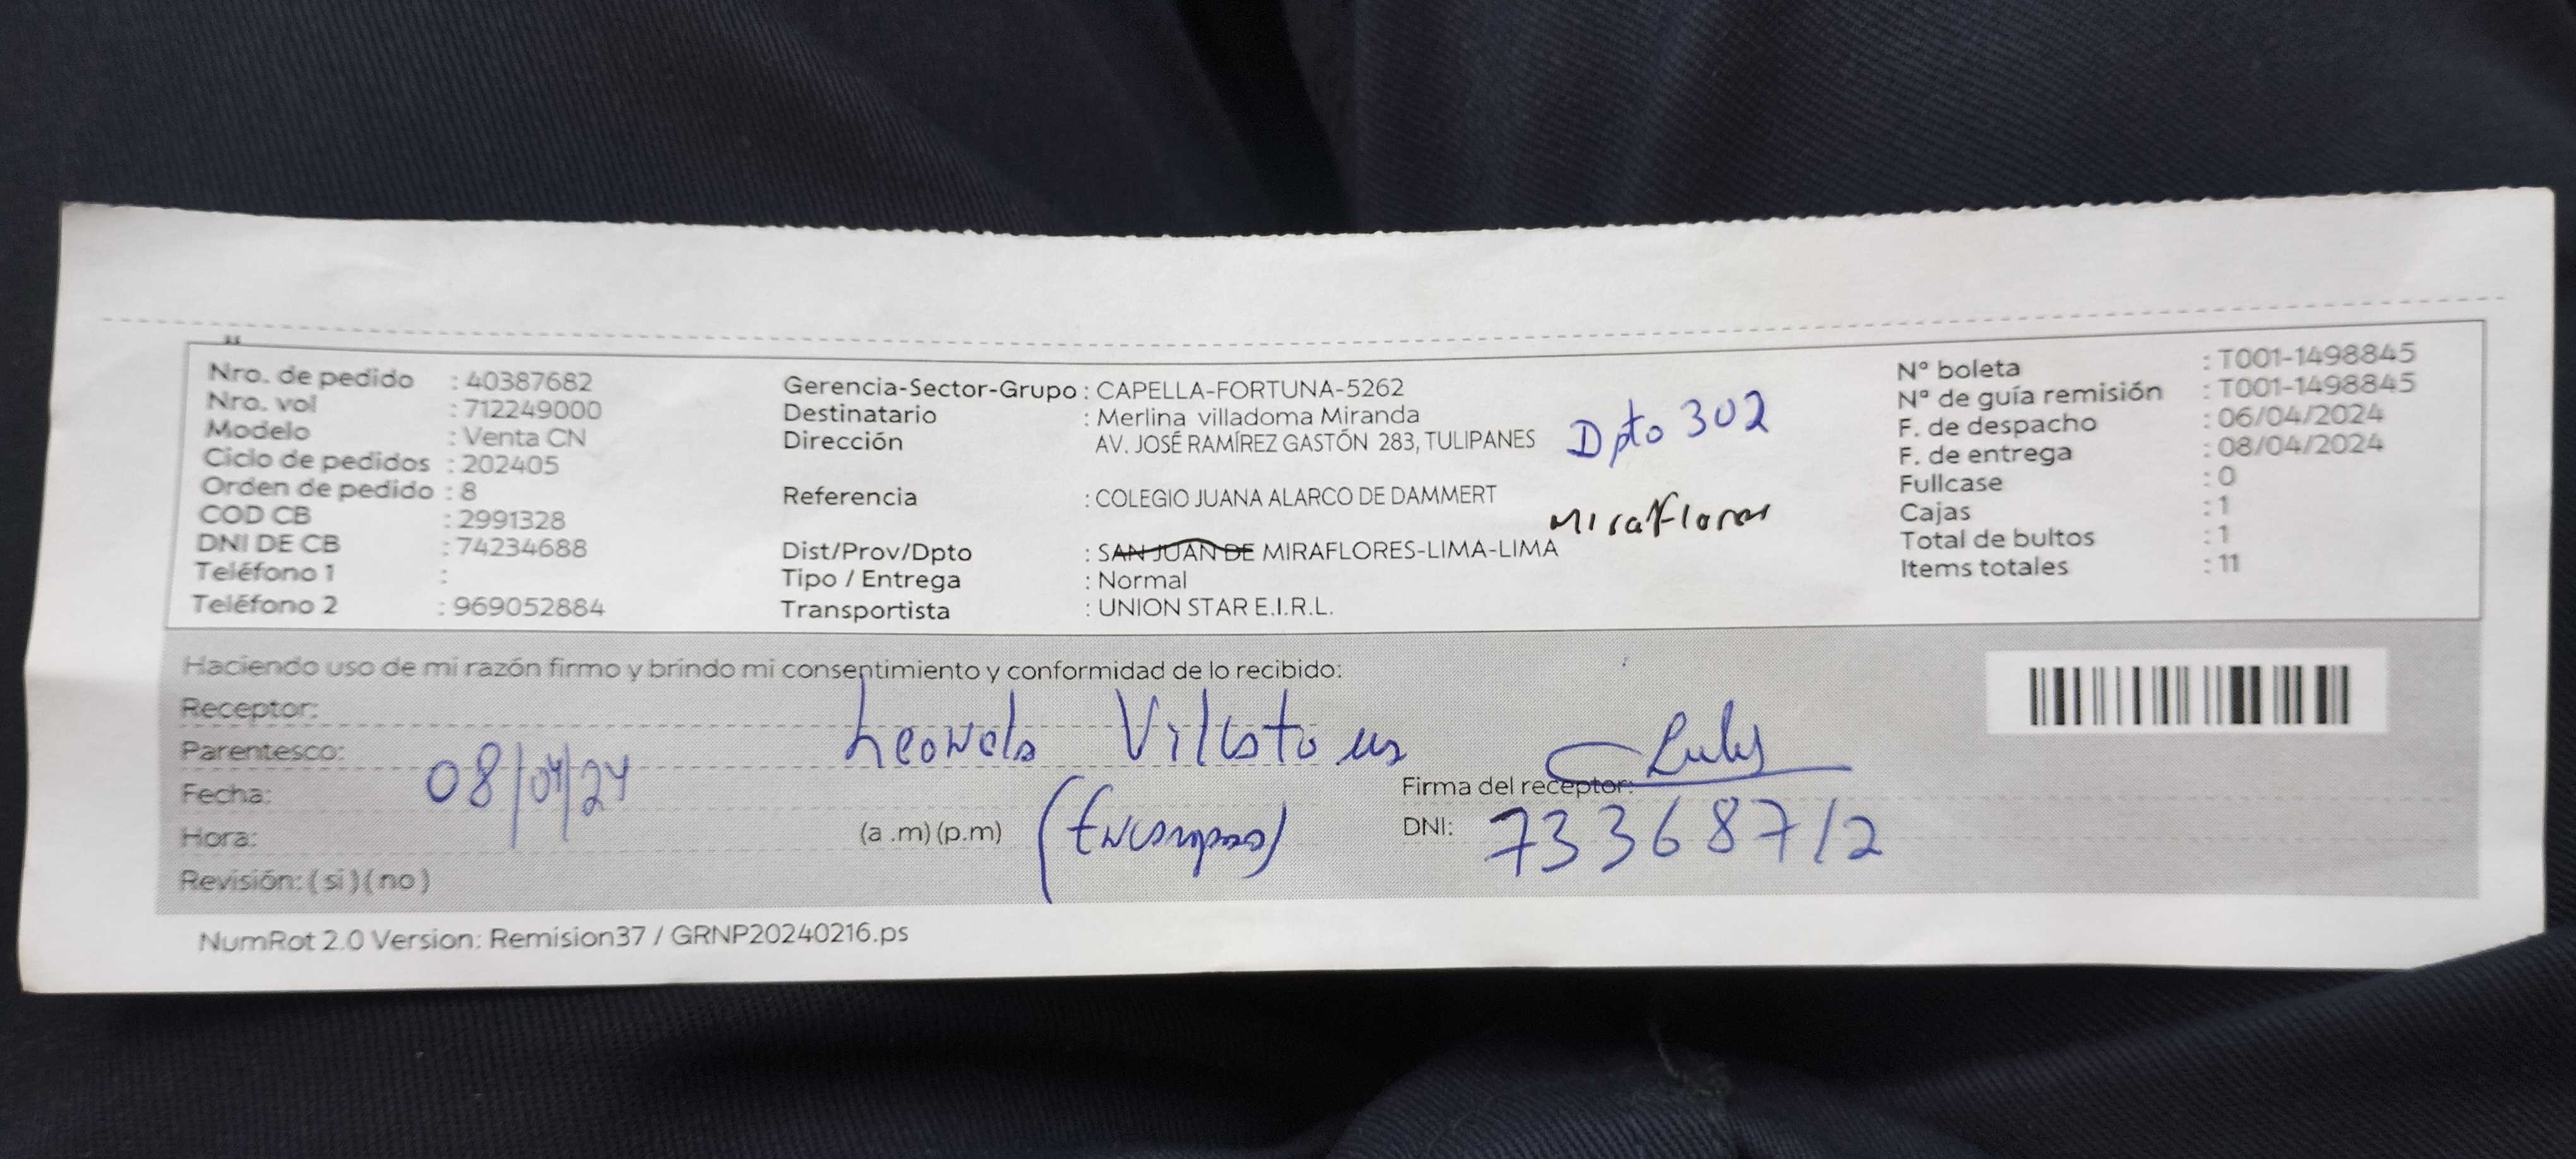 Nro. de pedido : 40387682
Nro. vol : 712249000
Modelo : Venta CN
Ciclo de pedidos : 202405
Orden de pedido : 8
COD CB : 2991328
DNI DE CB : 74234688
Teléfono 1 :
Teléfono 2 : 969052884
Gerencia-Sector-Grupo : CAPELLA-FORTUNA-5262
Destinatario : Merlina villadoma Miranda
Dirección AV. JOSÉ RAMÍREZ GASTÓN 283, TULIPANES Dpto 302
Referencia : COLEGIO JUANA ALARCO DE DAMMERT
Miraflores
Dist/Prov/Dpto : SAN JUAN DE MIRAFLORES-LIMA-LIMA
Tipo / Entrega : Normal
Transportista : UNION STAR E.I.R.L.
N° boleta : T001-1498845
N° de guía remisión : T001-1498845
F. de despacho : 06/04/2024
F. de entrega : 08/04/2024
Fullcase : 0
Cajas : 1
Total de bultos : 1
Items totales : 11
Haciendo uso de mi razón firmo y brindo mi consentimiento y conformidad de lo recibido:
Receptor:
Parentesco:
Fecha: 08/04/24
Firma del receptor:
Hora: (a .m) (p.m)
DNI: 73368712
Revisión: ( si ) ( no )
NumRot 2.0 Version: Remision37 / GRNP20240216.ps